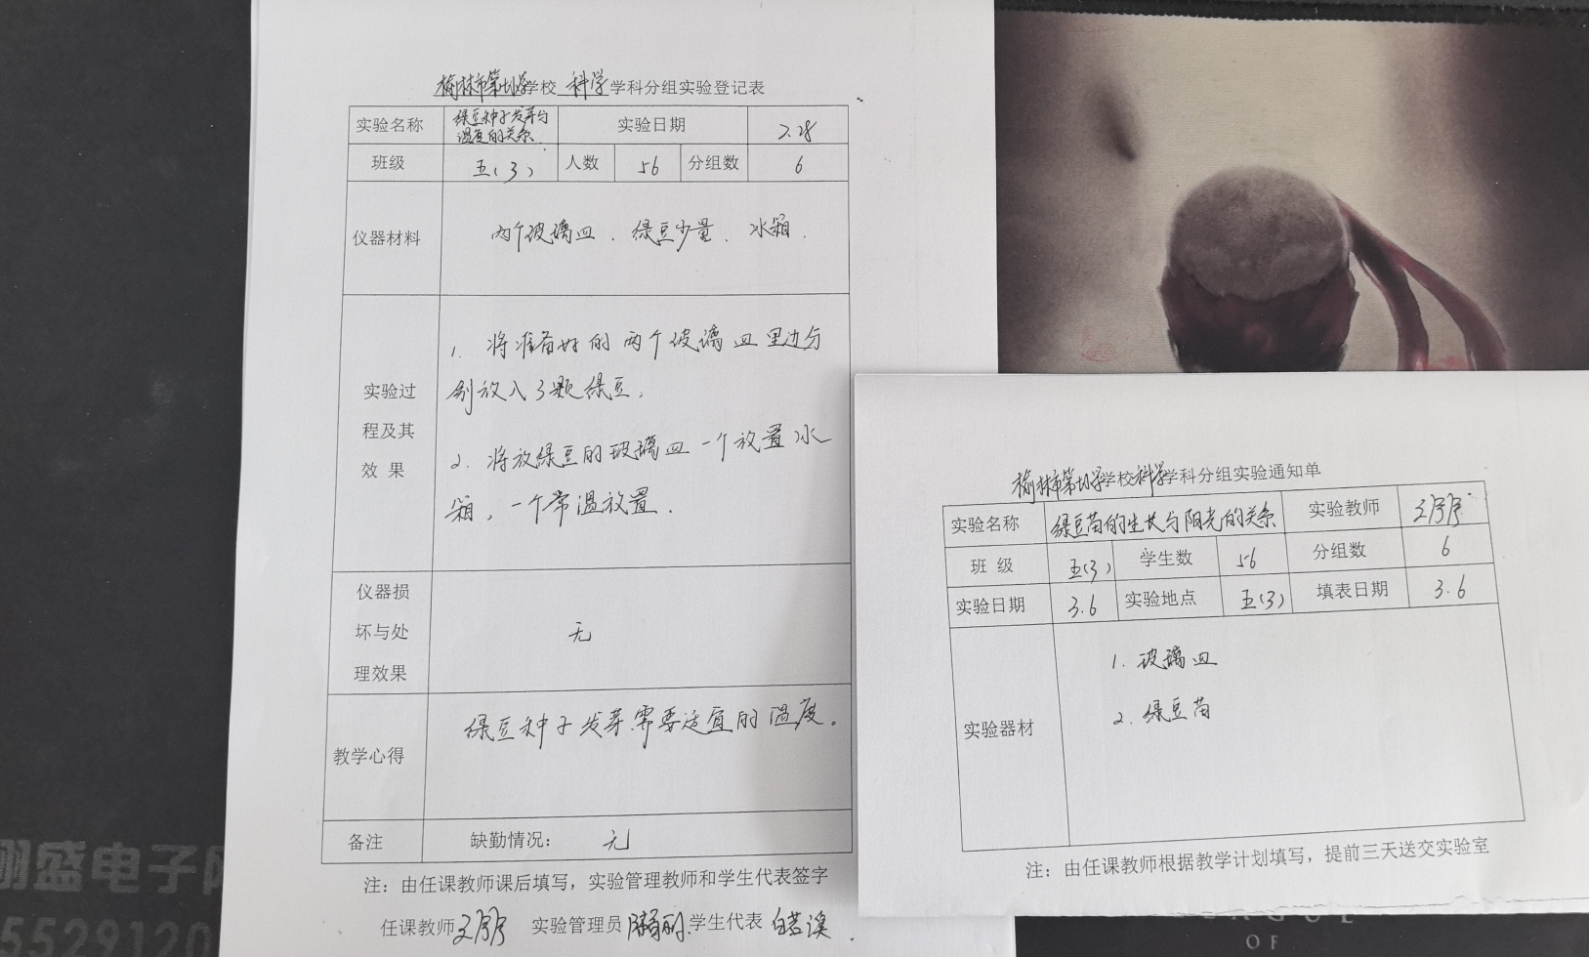 榆林市第十小学学校 科学 学科分组实验登记表
实验名称 绿豆种子发芽与温度的关系. 实验日期 2.28
班级 五(3) 人数 56 分组数 6
仪器材料 两个玻璃皿、绿豆少量、冰箱.
实验过程及其效果
1. 将准备好的两个玻璃皿里边分
别放入3颗绿豆.
2. 将放绿豆的玻璃皿一个放置冰
箱,一个常温放置.
仪器损坏与处理效果 无
教学心得 绿豆种子发芽需要适宜的温度.
备注 缺勤情况: 无
注:由任课教师课后填写,实验管理教师和学生代表签字
任课教师 实验管理员 学生代表 白若溪
榆林市第十小学学校科学学科分组实验通知单
实验名称 绿豆苗的生长与阳光的关系 实验教师
班 级 五(3) 学生数 56 分组数 6
实验日期 3.6 实验地点 五(3) 填表日期 3.6
实验器材
1. 玻璃皿
2. 绿豆苗
注:由任课教师根据教学计划填写,提前三天送交实验室
盛电子
5529120
OF